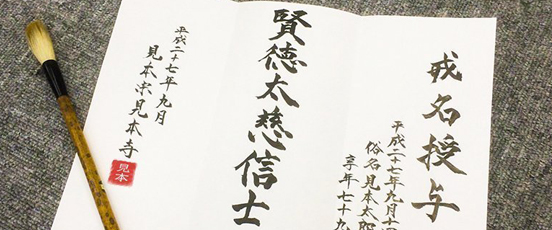 戒名授与
平成二十七年九月十
俗名見本太郎
享年七十九
賢徳太慈信士
平成二十七年九月
見本宗見本寺
見本